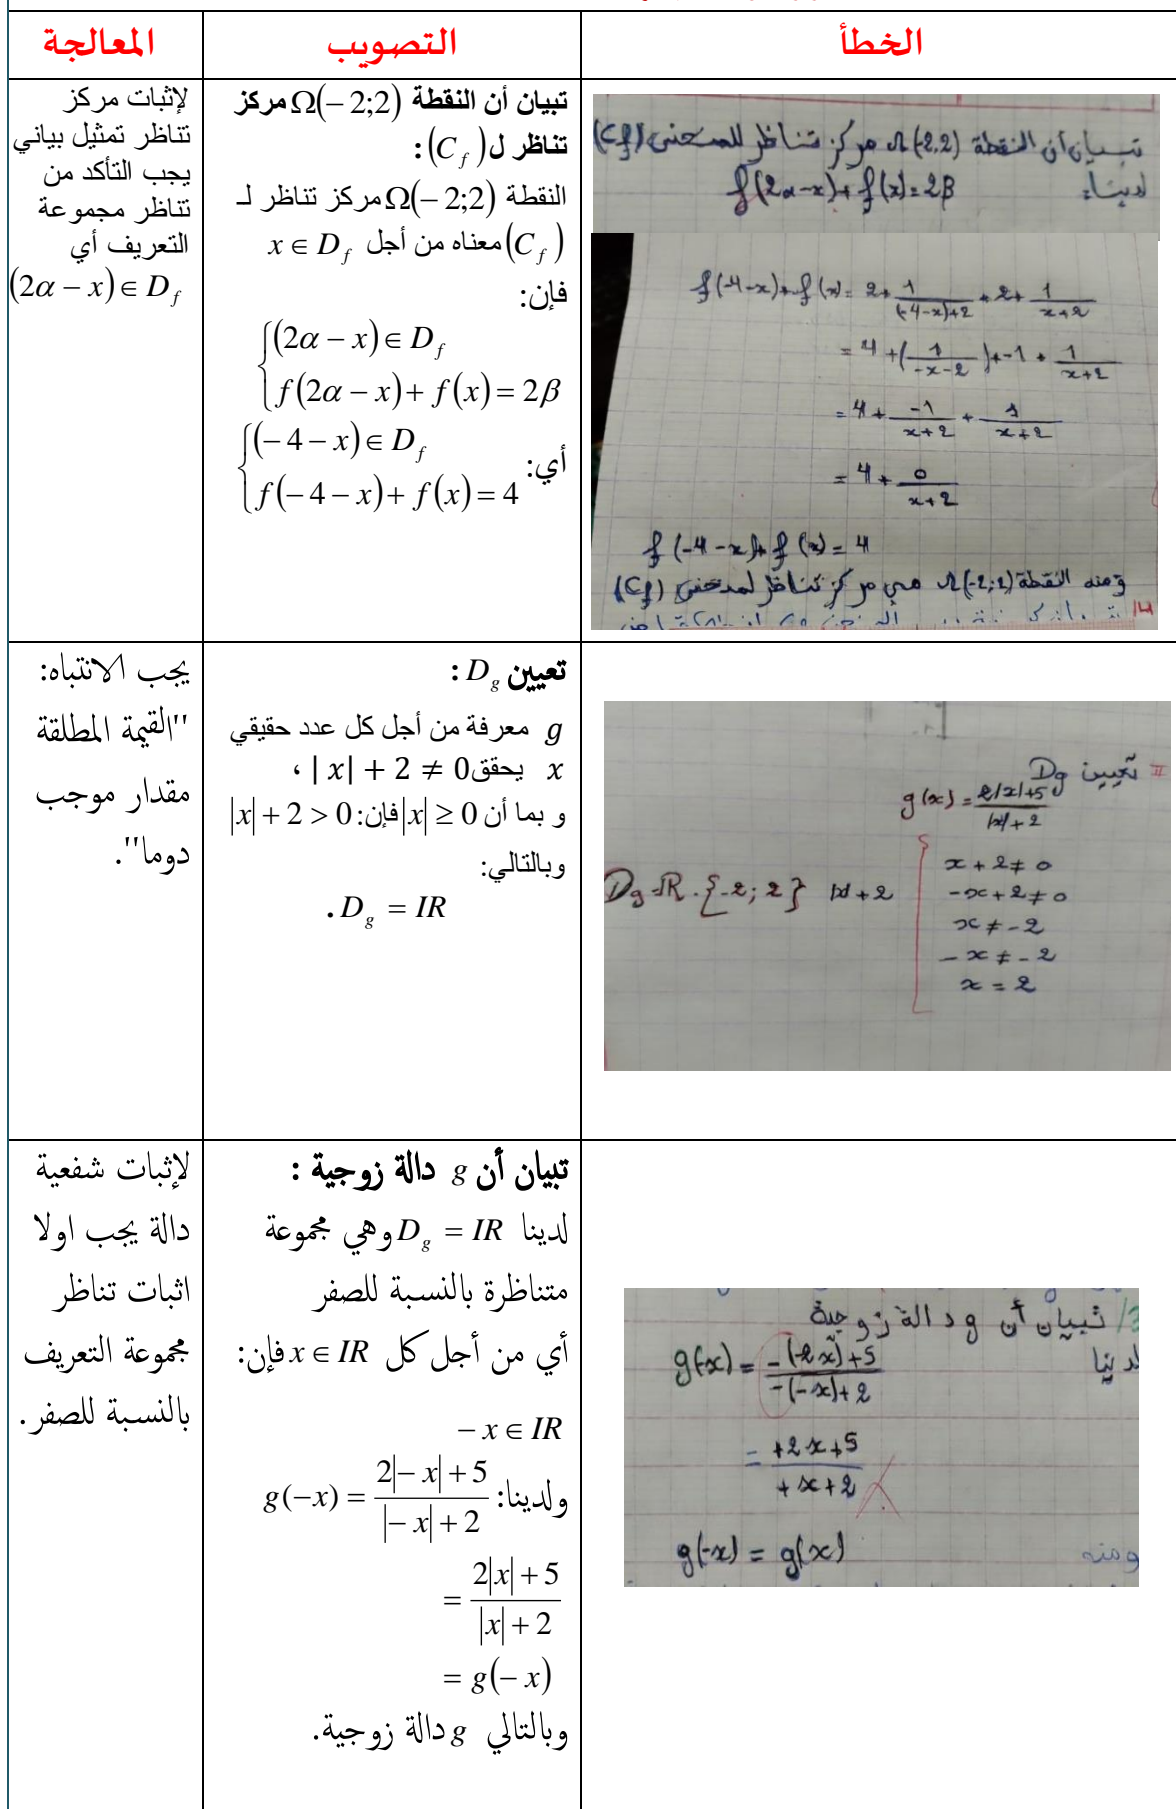 الخطأ
التصويب
المعالجة
تبيان أن النقطة Ω(-2,2) مركز تناظر للمنحنى (Cf)
لدينا: f(2α-x)+f(x)=2β
f(-4-x)+f(x)= 2+1/((-4-x)+2)+2+1/(x+2)
= 4+(1/(-x-2))+-1+1/(x+2)
= 4+(-1)/(x+2)+1/(x+2)
= 4+0/(x+2)
f(-4-x)+f(x)=4
ومنه النقطة Ω(-2;2) هي مركز تناظر لمنحنى (Cf)
تبيان أن النقطة Ω(-2;2) مركز
تناظر ل (C_f) :
النقطة Ω(-2;2) مركز تناظر لـ
(C_f) معناه من أجل x ∈ D_f
فإن:
{(2α - x) ∈ D_f
f(2α - x) + f(x) = 2β
أي: {(-4 - x) ∈ D_f
f(-4 - x) + f(x) = 4
لإثبات مركز
تناظر تمثيل بياني
يجب التأكد من
تناظر مجموعة
التعريف أي
(2α - x) ∈ D_f
II تعيين Dg
g(x) = (2|x|+5)/(|x|+2)
x+2≠0
|x|+2 -x+2≠0
Dg=R-{-2;2}
x≠-2
-x≠-2
x=2
تعيين D_g :
g معرفة من أجل كل عدد حقيقي
x يحقق |x| + 2 ≠ 0 ،
و بما أن |x| ≥ 0 فإن: |x| + 2 > 0
وبالتالي:
D_g = IR .
يجب الانتباه:
"القيمة المطلقة
مقدار موجب
دوما".
3/ تبيان أن g دالة زوجية
لدينا g(-x) = (-(-2x)+5)/(-(-x)+2)
= (+2x+5)/(+x+2)
ومنه g(-x) = g(x)
تبيان أن g دالة زوجية :
لدينا D_g = IR وهي مجموعة
متناظرة بالنسبة للصفر
أي من أجل كل x ∈ IR فإن:
- x ∈ IR
ولدينا: g(-x) = (2|-x| + 5)/(|-x| + 2)
= (2|x| + 5)/(|x| + 2)
= g(-x)
وبالتالي g دالة زوجية.
لإثبات شفعية
دالة يجب اولا
اثبات تناظر
مجموعة التعريف
بالنسبة للصفر.